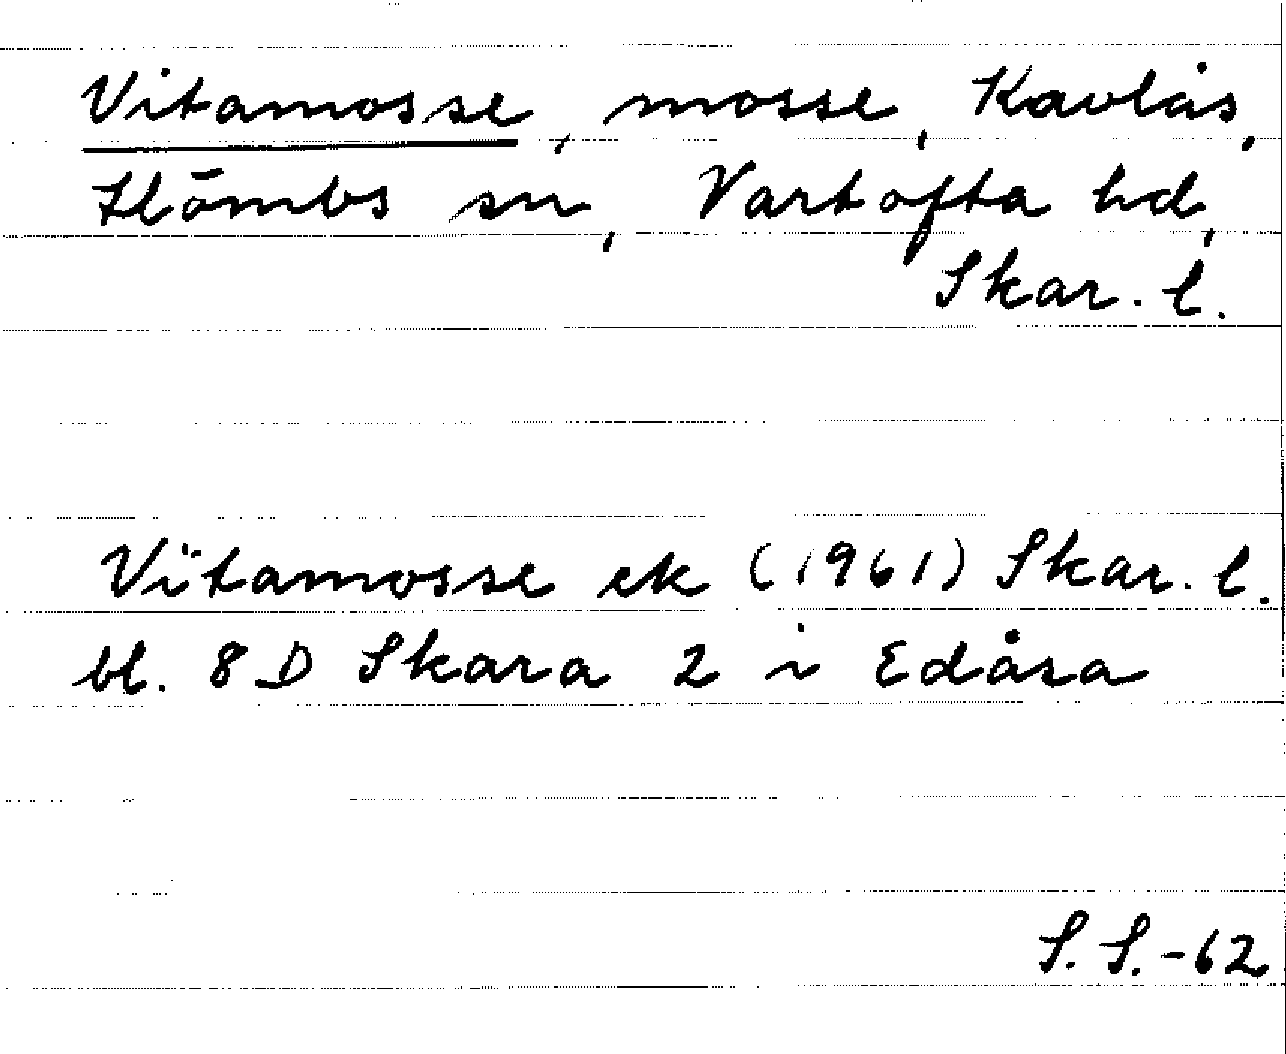 Vitamosse, mosse, Kavlås,
Hömbs sn, Vartofta hd,
Skar. l.
Vitamosse ek (1961) Skar. l.
bl. 8 D Skara 2 i Edåsa
S. S. -62